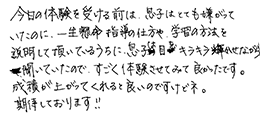 今日の体験を受ける前は、息子はとても嫌がって
いたのに、一生懸命指導の仕方や、学習の方法を
説明して頂いているうちに、息子が目をキラキラ輝かせながら
聞いていたので、すごく体験させてみて良かったです。
成績が上がってくれると良いのですけどネ。
期待しております!!